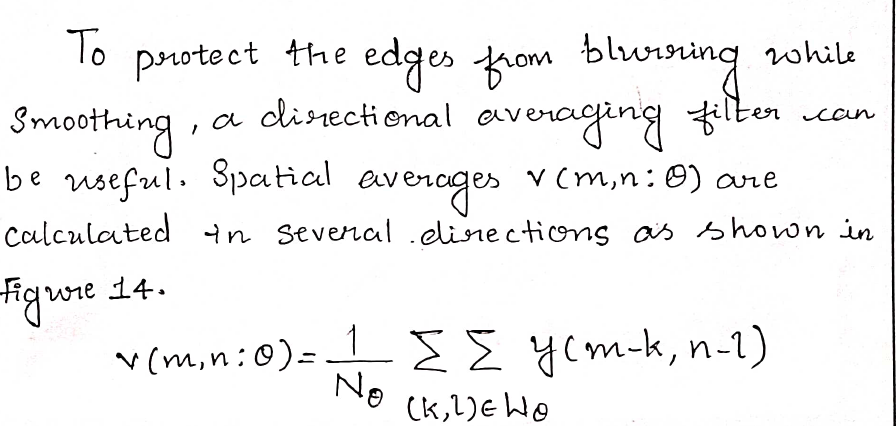 To protect the edges from blurring while
Smoothing, a directional averaging filter can
be useful. Spatial averages v(m,n:θ) are
calculated in several directions as shown in
Figure 14.
v(m,n:θ) = 1/Nθ Σ Σ y(m-k, n-l)
(k,l)∈Wθ